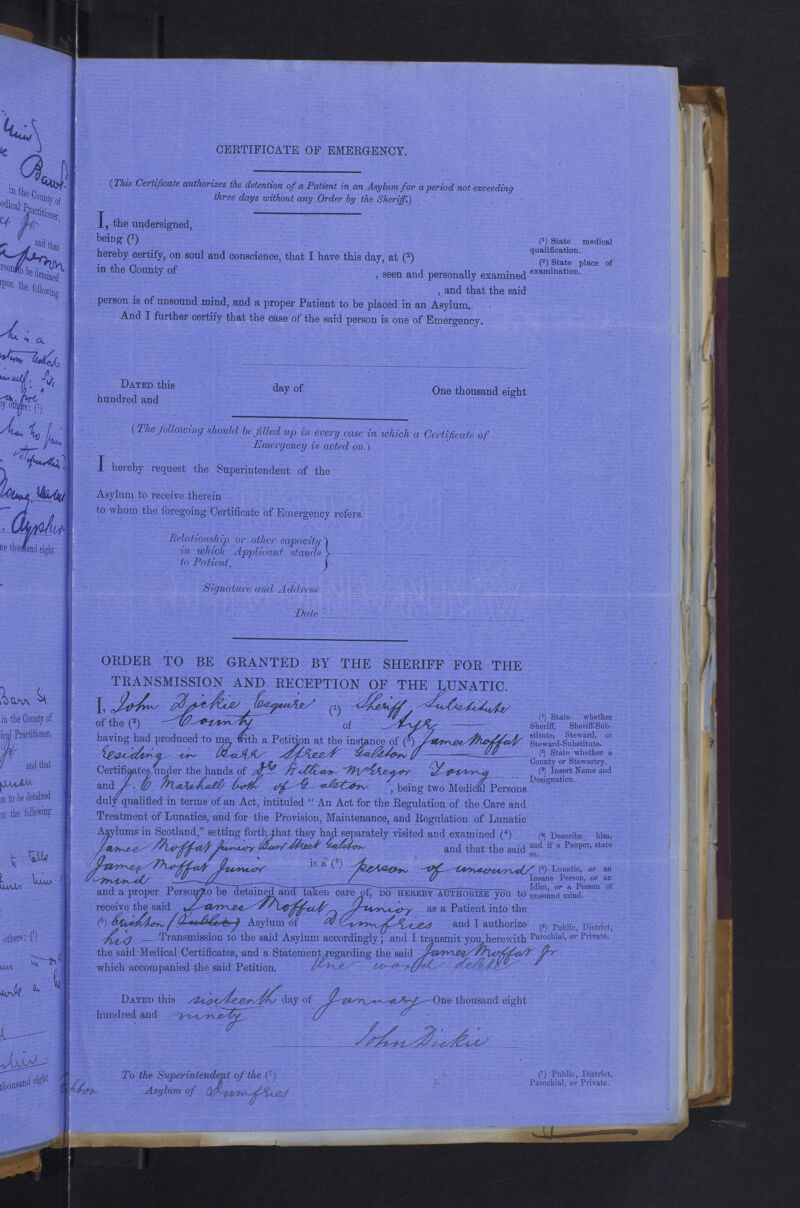 CERTIFICATE OF EMERGENCY.
(This Certificate authorizes the detention of a Patient in an Asylum for a period not exceeding
three days without any Order by the Sheriff.)
I, the undersigned,
being (¹)
hereby certify, on soul and conscience, that I have this day, at (²)
in the County of , seen and personally examined
, and that the said
person is of unsound mind, and a proper Patient to be placed in an Asylum.
And I further certify that the case of the said person is one of Emergency.
(¹) State medical
qualification.
(²) State place of
examination.
DATED this day of One thousand eight
hundred and
(The following should be filled up in every case in which a Certificate of
Emergency is acted on.)
I hereby request the Superintendent of the
Asylum to receive therein
to whom the foregoing Certificate of Emergency refers.
Relationship or other capacity
in which Applicant stands
to Patient,
Signature and Address
Date
ORDER TO BE GRANTED BY THE SHERIFF FOR THE
TRANSMISSION AND RECEPTION OF THE LUNATIC.
I, John Dickie Esquire (¹) Sheriff Substitute
of the (²) County of Ayr
having had produced to me, with a Petition at the instance of (³) James Moffat
residing in Barr Street Galston
Certificates under the hands of Drs William McGregor Young
and J. C Marshall both of Galston, being two Medical Persons
duly qualified in terms of an Act, intituled "An Act for the Regulation of the Care and
Treatment of Lunatics, and for the Provision, Maintenance, and Regulation of Lunatic
Asylums in Scotland," setting forth that they had separately visited and examined (⁴)
James Moffat Junior Barr Street Galston and that the said
James Moffat Junior is a (⁵) person of unsound
mind
and a proper Person to be detained and taken care of, DO HEREBY AUTHORIZE you to
receive the said James Moffat Junior as a Patient into the
(⁶) Crichton (Public) Asylum of Dumfries and I authorize
his Transmission to the said Asylum accordingly; and I transmit you herewith
the said Medical Certificates, and a Statement regarding the said James Moffat Jr
which accompanied the said Petition. One word delete
(¹) State whether
Sheriff, Sheriff-Sub-
stitute, Steward, or
Steward-Substitute.
(²) State whether a
County or Stewartry.
(³) Insert Name and
Designation.
(⁴) Describe him,
and if a Pauper, state
so.
(⁵) Lunatic, or an
Insane Person, or an
Idiot, or a Person of
unsound mind.
(⁶) Public, District,
Parochial, or Private.
DATED this sixteenth day of January One thousand eight
hundred and ninety
John Dickie
To the Superintendent of the (⁷)
Asylum of Dumfries
(⁷) Public, District,
Parochial, or Private.